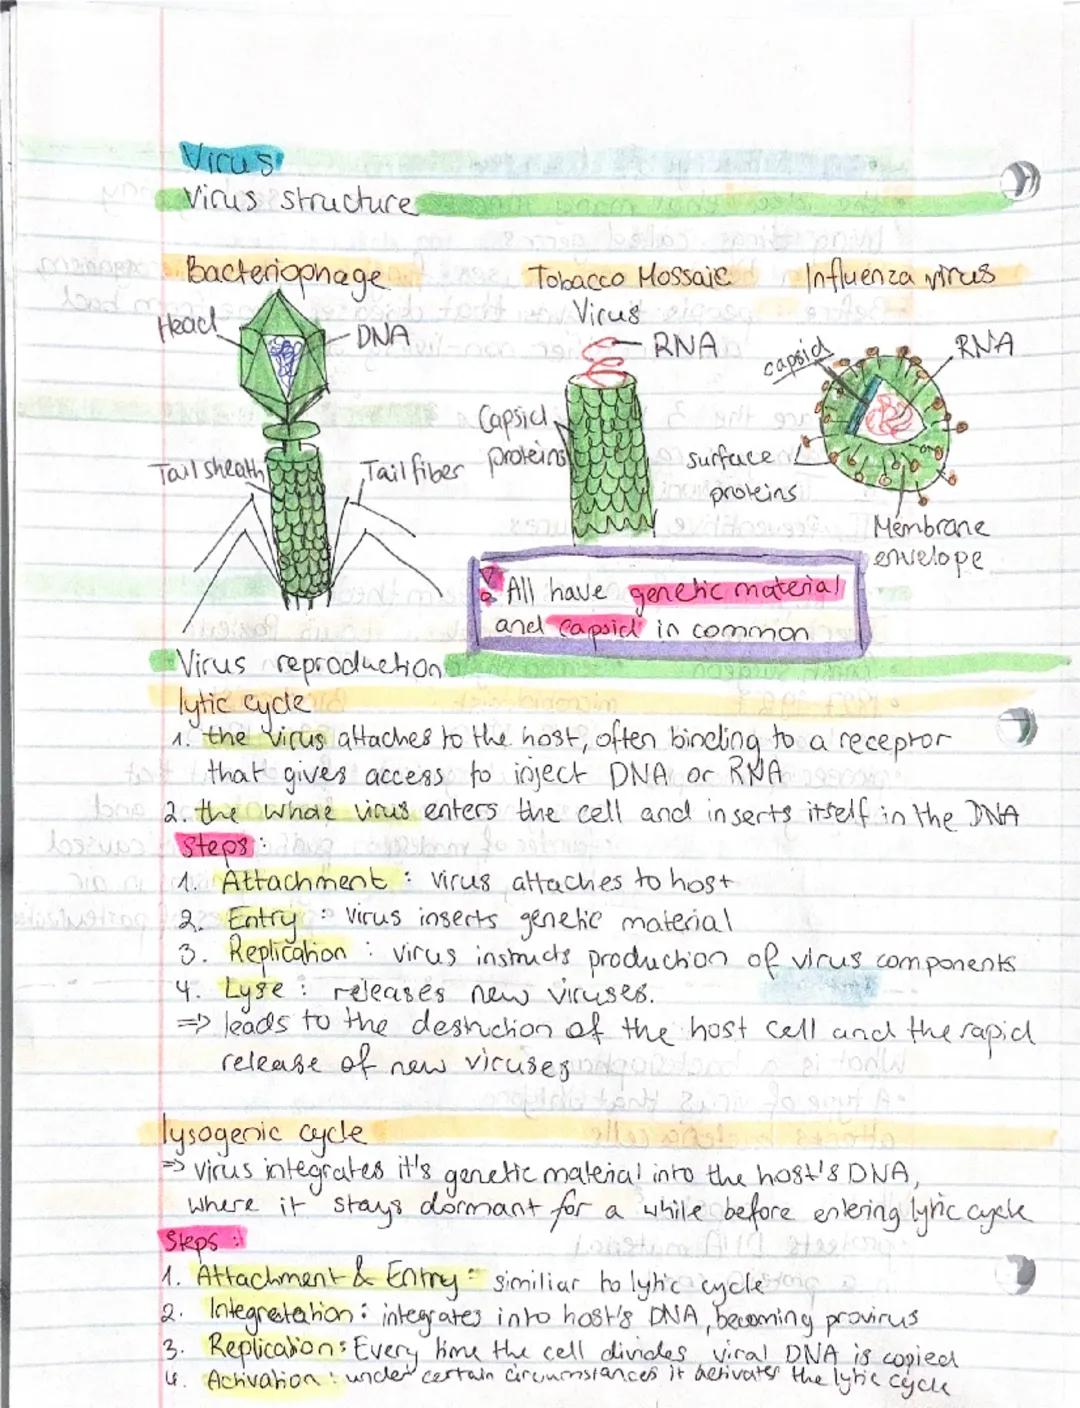 Virus
Virus structure
Bacteriophage
Tobacco Mossaic
Virus
Influenza virus
Head
DNA
RNA
capsid
RNA
Capsid
proteins
Tail sheath
Tail fiber
surface
proteins
Membrane
envelope
All have genetic material
and capsid in common
Virus reproduction
lytic cycle
1. the virus attaches to the host, often binding to a receptor
that gives access to inject DNA or RNA
2. the whole virus enters the cell and inserts itself in the DNA
Steps:
1. Attachment: virus attaches to host
2. Entry: virus inserts genetic material
3. Replication: virus instructs production of virus components
4. Lyse: releases new viruses.
=> leads to the destruction of the host cell and the rapid
release of new viruses
lysogenic cycle
=> virus integrates it's genetic material into the host's DNA,
where it stays dormant for a while before entering lytic cycle
Steps:
1. Attachment & Entry: similiar to lytic cycle
2. Integretation: integrates into host's DNA, becoming provirus
3. Replication: Every time the cell divides viral DNA is copied
4. Activation: under certain circumstances it activates the lytic cycle